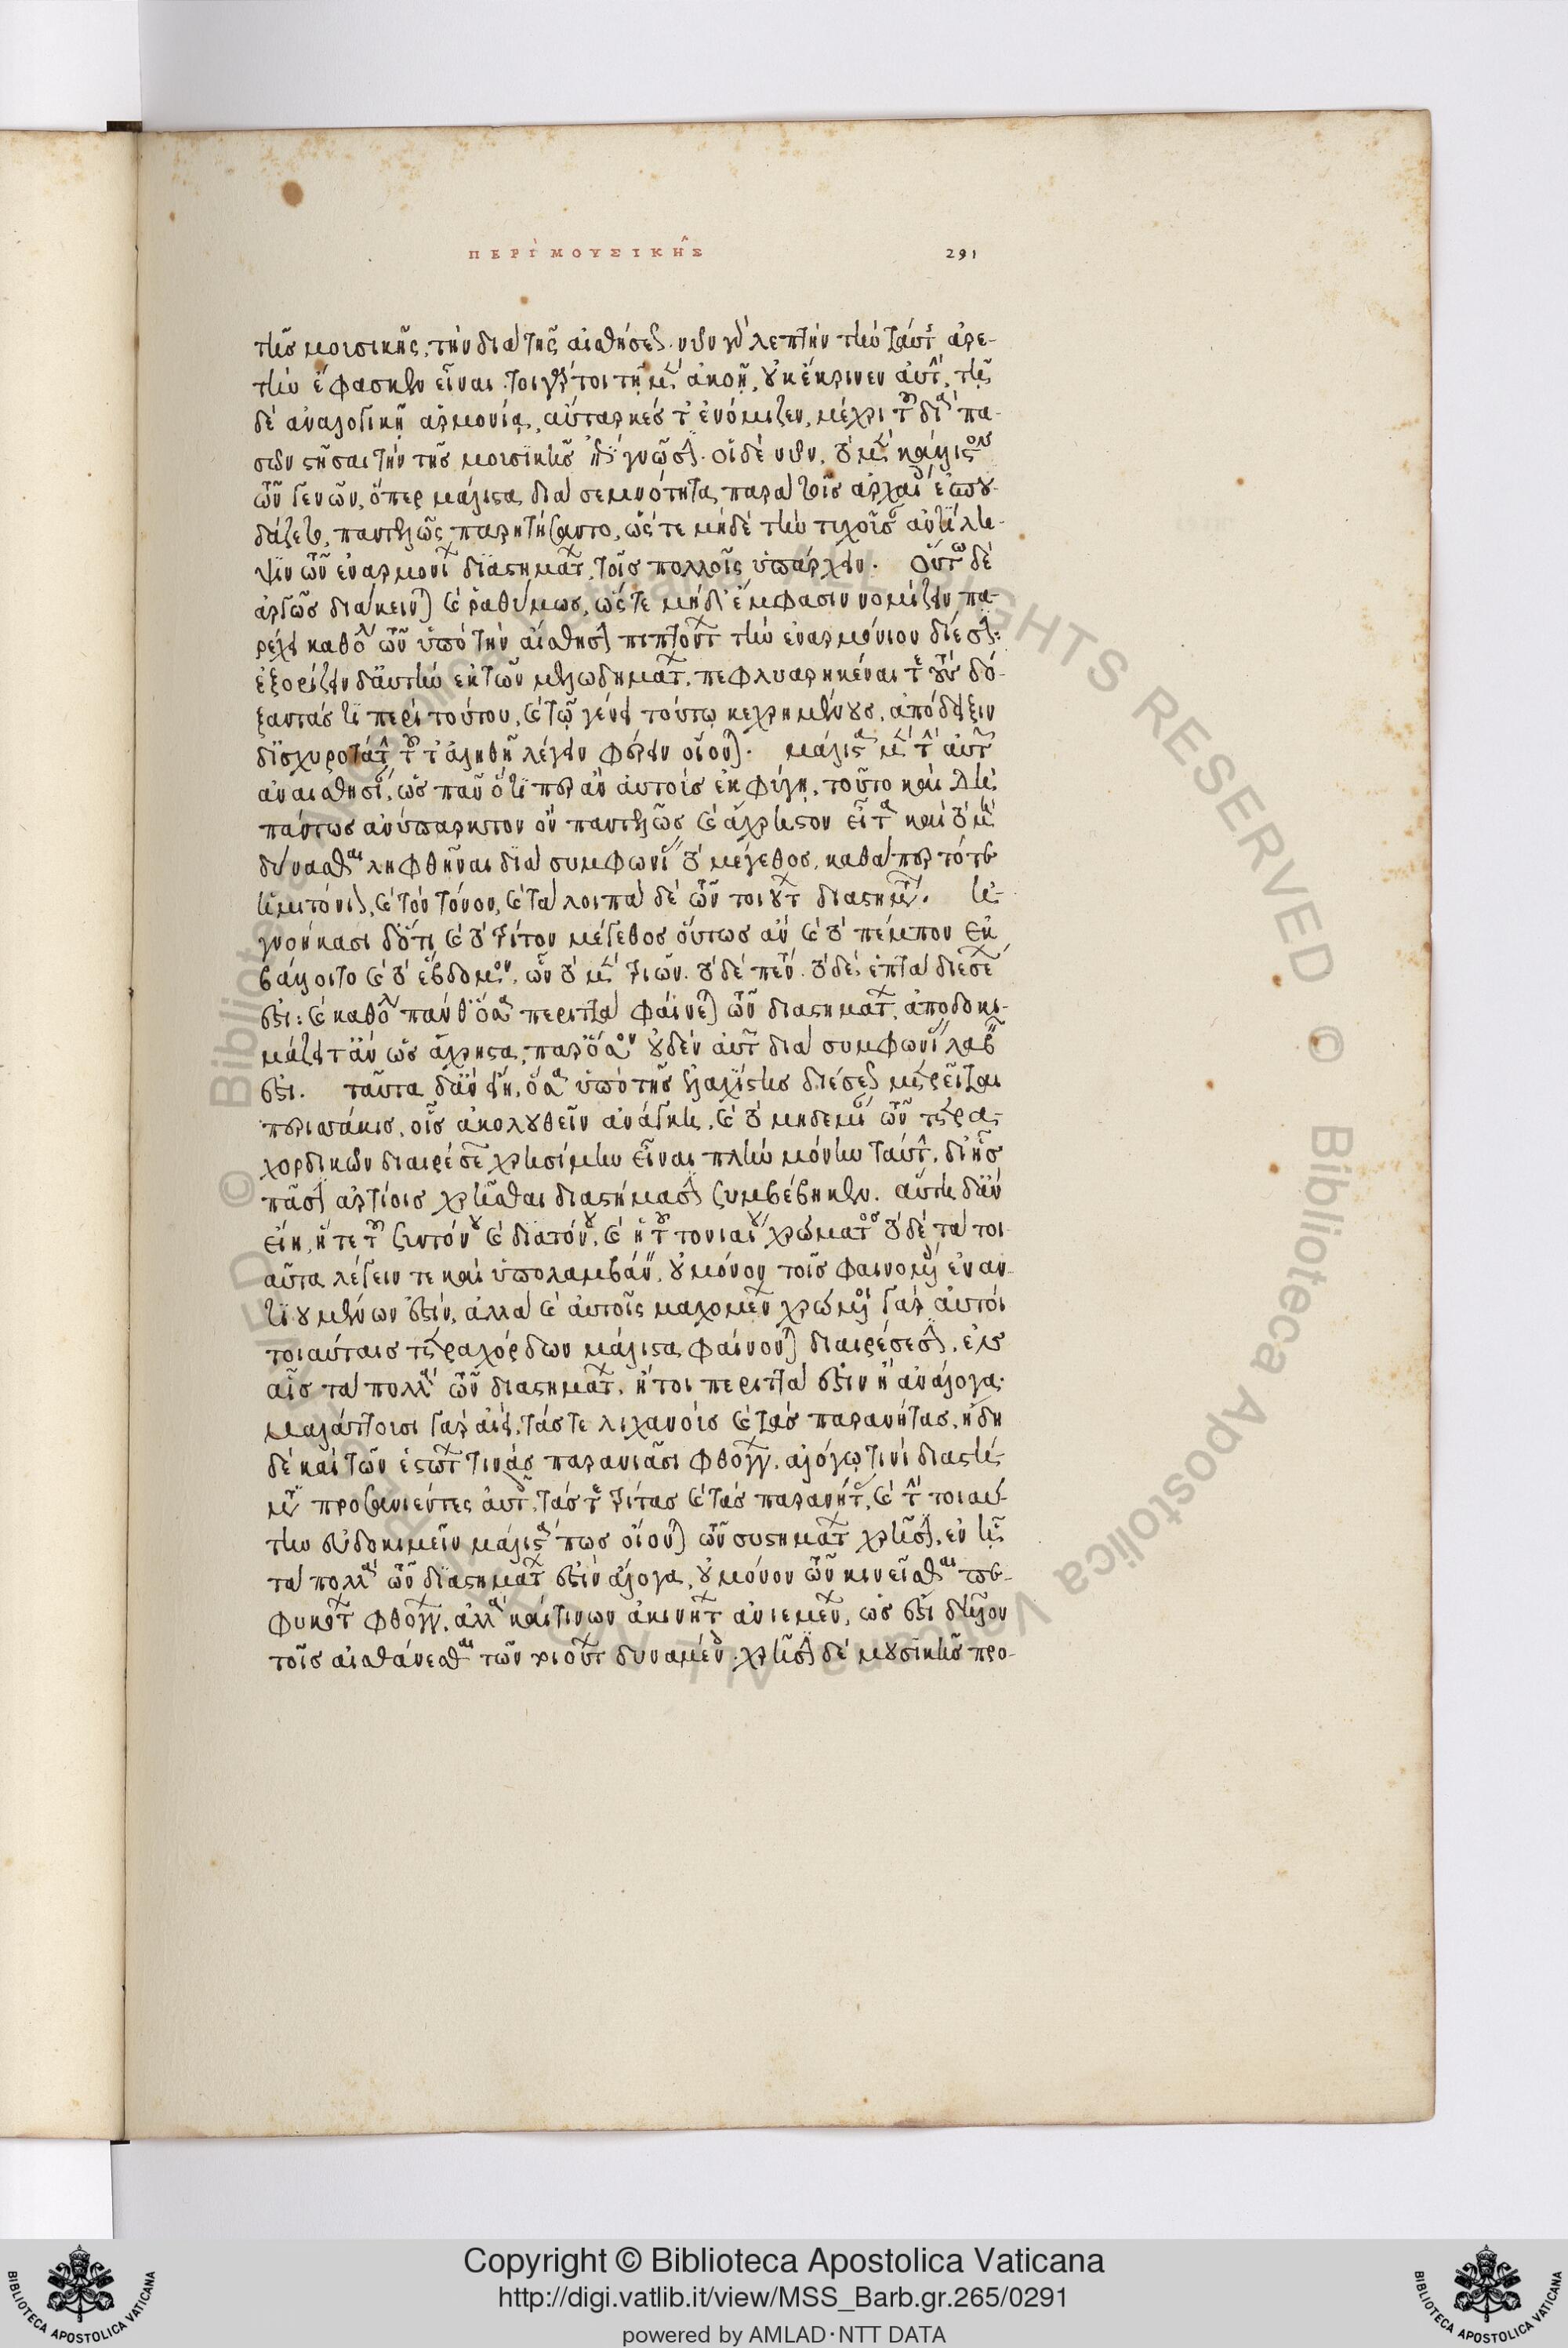 ΠΕΡῚ ΜΟΥΣΙΚΗ͂Σ 291
τῆς μουσικῆς, τὴν διὰ τῆς αἰσθήσεως. νῦν γὰρ λεπτὴν τὴν ταύτης ἀρε-
τὴν ἔφασκεν εἶναι. τοιγάρτοι τῇ μὲν ἀκοῇ, οὐκ ἔκρινεν αὐτήν, τῇ
δὲ ἀναλογικῇ ἁρμονίᾳ, αὔταρκές τ' ἐνόμιζεν, μέχρι τοῦ διὰ πα-
σῶν στῆσαι τὴν τῆς μουσικῆς ἐπίγνωσιν. οἱ δὲ νῦν, τὸ μὲν κάλλιστον
τῶν γενῶν, ὅπερ μάλιστα διὰ σεμνότητα παρὰ τοῖς ἀρχαίοις ἐσπου-
δάζετο, παντελῶς παρῃτήσαντο, ὥστε μηδὲ τὴν τυχοῦσαν ἀντίλη-
ψιν τῶν ἐναρμονίων διαστημάτων, τοῖς πολλοῖς ὑπάρχειν. Οὕτω δὲ
ἀργῶς διάκεινται καὶ ῥαθύμως, ὥστε μηδ' ἔμφασιν νομίζειν πα-
ρέχειν καθόλου τῶν ὑπὸ τὴν αἴσθησιν πιπτόντων τὴν ἐναρμόνιον δίεσιν:
ἐξορίζειν δ' αὐτὴν ἐκ τῶν μελῳδημάτων. πεφλυαρηκέναι τε τοὺς δό-
ξαντάς τι περὶ τούτου, καὶ τῷ γένει τούτῳ κεχρημένους. ἀπόδειξιν
δ' ἰσχυροτάτην τοῦ τ' ἀληθῆ λέγειν φέρειν οἴονται. μάλιστα μὲν τὴν αὐτῶν
ἀναισθησίαν, ὡς πᾶν ὅτιπερ ἂν αὐτοὺς ἐκφύγῃ, τοῦτο καὶ δὴ
πάντως ἀνύπαρκτον ὂν παντελῶς καὶ ἄχρηστον εἶτα καὶ τὸ μὴ
δύνασθαι ληφθῆναι διὰ συμφωνίας τὸ μέγεθος, καθάπερ τό τε
ἡμιτόνιον, καὶ τὸν τόνον, καὶ τὰ λοιπὰ δὲ τῶν τοιούτων διαστημάτων. ἠ-
γνοήκασι δ' ὅτι καὶ τὸ τρίτον μέγεθος οὕτως ἂν καὶ τὸ πέμπτον ἐκ-
βάλλοιτο καὶ τὸ ἕβδομον, ὧν τὸ μὲν τριῶν. τὸ δὲ πέντε. τὸ δὲ, ἑπτὰ διέσεών
ἐστι: καὶ καθόλου πάνθ' ὅσα περιττὰ φαίνεται τῶν διαστημάτων, ἀποδοκι-
μάζοιτ' ἂν ὡς ἄχρηστα, παρόσον οὐδὲν αὐτῶν διὰ συμφωνίας λαβεῖν
ἐστι. ταῦτα δ' ἂν εἴη, ὅσα ὑπὸ τῆς ἐλαχίστης διέσεως μετρεῖται
περισσάκις, οἷς ἀκολουθεῖν ἀνάγκη, καὶ τὸ μηδεμίαν τῶν τετρα-
χορδικῶν διαιρέσεων χρησίμην εἶναι πλὴν μόνην ταύτην, δι' ἧς
πᾶσιν ἀρτίοις χρῆσθαι διαστήμασιν συμβέβηκεν. αὕτη δ' ἂν
εἴη, ἥ τε τοῦ συντόνου καὶ διατόνου, καὶ ἡ τοῦ τονιαίου χρώματος τὸ δὲ τὰ τοι-
αῦτα λέγειν τε καὶ ὑπολαμβάνειν, οὐ μόνον τοῖς φαινομένοις ἐναν-
τιουμένων ἐστίν, ἀλλὰ καὶ αὐτοῖς μαχομένων χρώμενοι γὰρ αὐτοὶ
τοιαύταις τετραχόρδων μάλιστα φαίνονται διαιρέσεσιν, ἐν
αἷς τὰ πολλὰ τῶν διαστημάτων, ἤτοι περιττά ἐστιν ἢ ἀνάλογα.
μαλάττουσι γὰρ ἀεί, τάς τε λιχανοὺς καὶ τὰς παρανήτας, ἤδη
δὲ καὶ τῶν ἑστώτων τινὰς παρανιᾶσι φθόγγων, ἀλόγῳ τινὶ διαστή-
ματι προσανιέντες αὐτοῖς, τάς τε τρίτας καὶ τὰς παρανήτας, καὶ τὴν τοιαύ-
την εὐδοκιμεῖν μάλιστά πως οἴονται τῶν συστημάτων χρῆσιν, ἐν ᾗ
τὰ πολλὰ τῶν διαστημάτων ἐστὶν ἄλογα, οὐ μόνον τῶν κινεῖσθαι πε-
φυκότων φθόγγων, ἀλλὰ καί τινων ἀκινήτων ἀνιεμένων, ὡς ἐστι δῆλον
τοῖς αἰσθάνεσθαι τῶν τοιούτων δυναμένοις. χρῆσιν δὲ μουσικῆς προ-
Copyright © Biblioteca Apostolica Vaticana
http://digi.vatlib.it/view/MSS_Barb.gr.265/0291
powered by AMLAD·NTT DATA